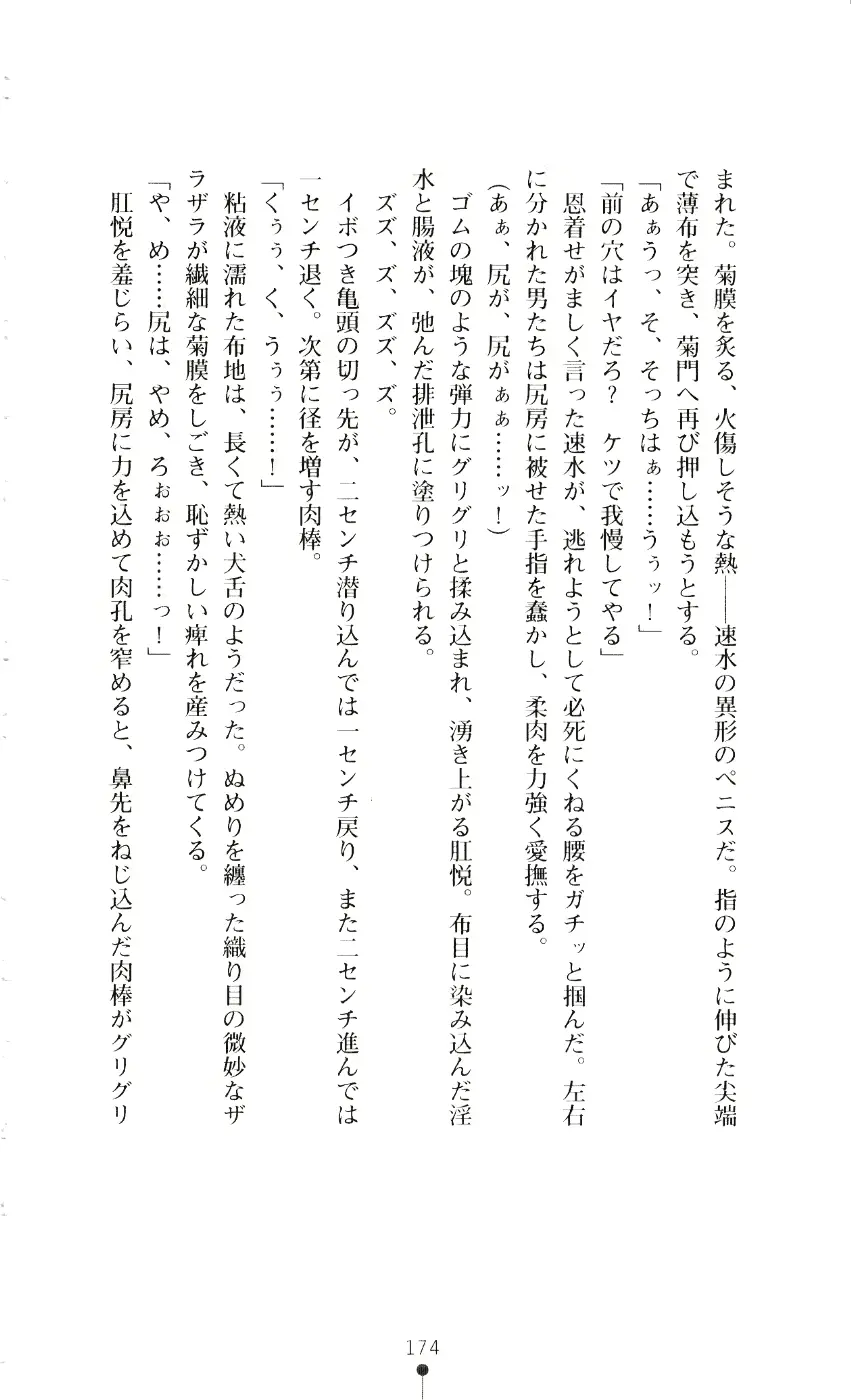 まれた。菊膜を炙る、火傷しそうな熱――速水の異形のペニスだ。指のように伸びた尖端
で薄布を突き、菊門へ再び押し込もうとする。
「あぁうっ、そ、そっちはぁ……うぅッ！」
「前の穴はイヤだろ？　ケツで我慢してやる」
恩着せがましく言った速水が、逃れようとして必死にくねる腰をガチッと掴んだ。左右
に分かれた男たちは尻房に被せた手指を蠢かし、柔肉を力強く愛撫する。
(あぁ、尻が、尻がぁぁ……ッ！)
ゴムの塊のような弾力にグリグリと揉み込まれ、湧き上がる肛悦。布目に染み込んだ淫
水と腸液が、弛んだ排泄孔に塗りつけられる。
ズズ、ズ、ズズ、ズ。
イボつき亀頭の切っ先が、二センチ潜り込んでは一センチ戻り、また二センチ進んでは
一センチ退く。次第に径を増す肉棒。
「くぅぅ、く、うぅぅ……！」
粘液に濡れた布地は、長くて熱い犬舌のようだった。ぬめりを纏った織り目の微妙なザ
ラザラが繊細な菊膜をしごき、恥ずかしい痺れを産みつけてくる。
「や、め……尻は、やめ、ろぉぉぉ……っ！」
肛悦を羞じらい、尻房に力を込めて肉孔を窄めると、鼻先をねじ込んだ肉棒がグリグリ
174